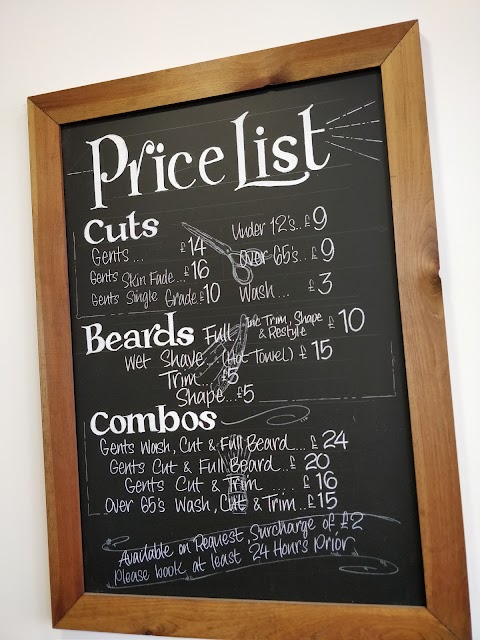 Price List
Cuts
Gents... £14
Gents Skin Fade... £16
Gents Single Grade.. £10
Under 12's.. £9
Over 65's.. £9
Wash... £3
Beards
Full, Inc Trim, Shape & Restyle £10
Wet Shave... (Hot Towel) £15
Trim... £5
Shape... £5
Combos
Gents Wash, Cut & Full Beard.... £24
Gents Cut & Full Beard.. £20
Gents Cut & Trim ..... £16
Over 65's Wash, Cut & Trim.. £15
Available on Request, Surcharge of £2
Please book at least 24 Hours Prior